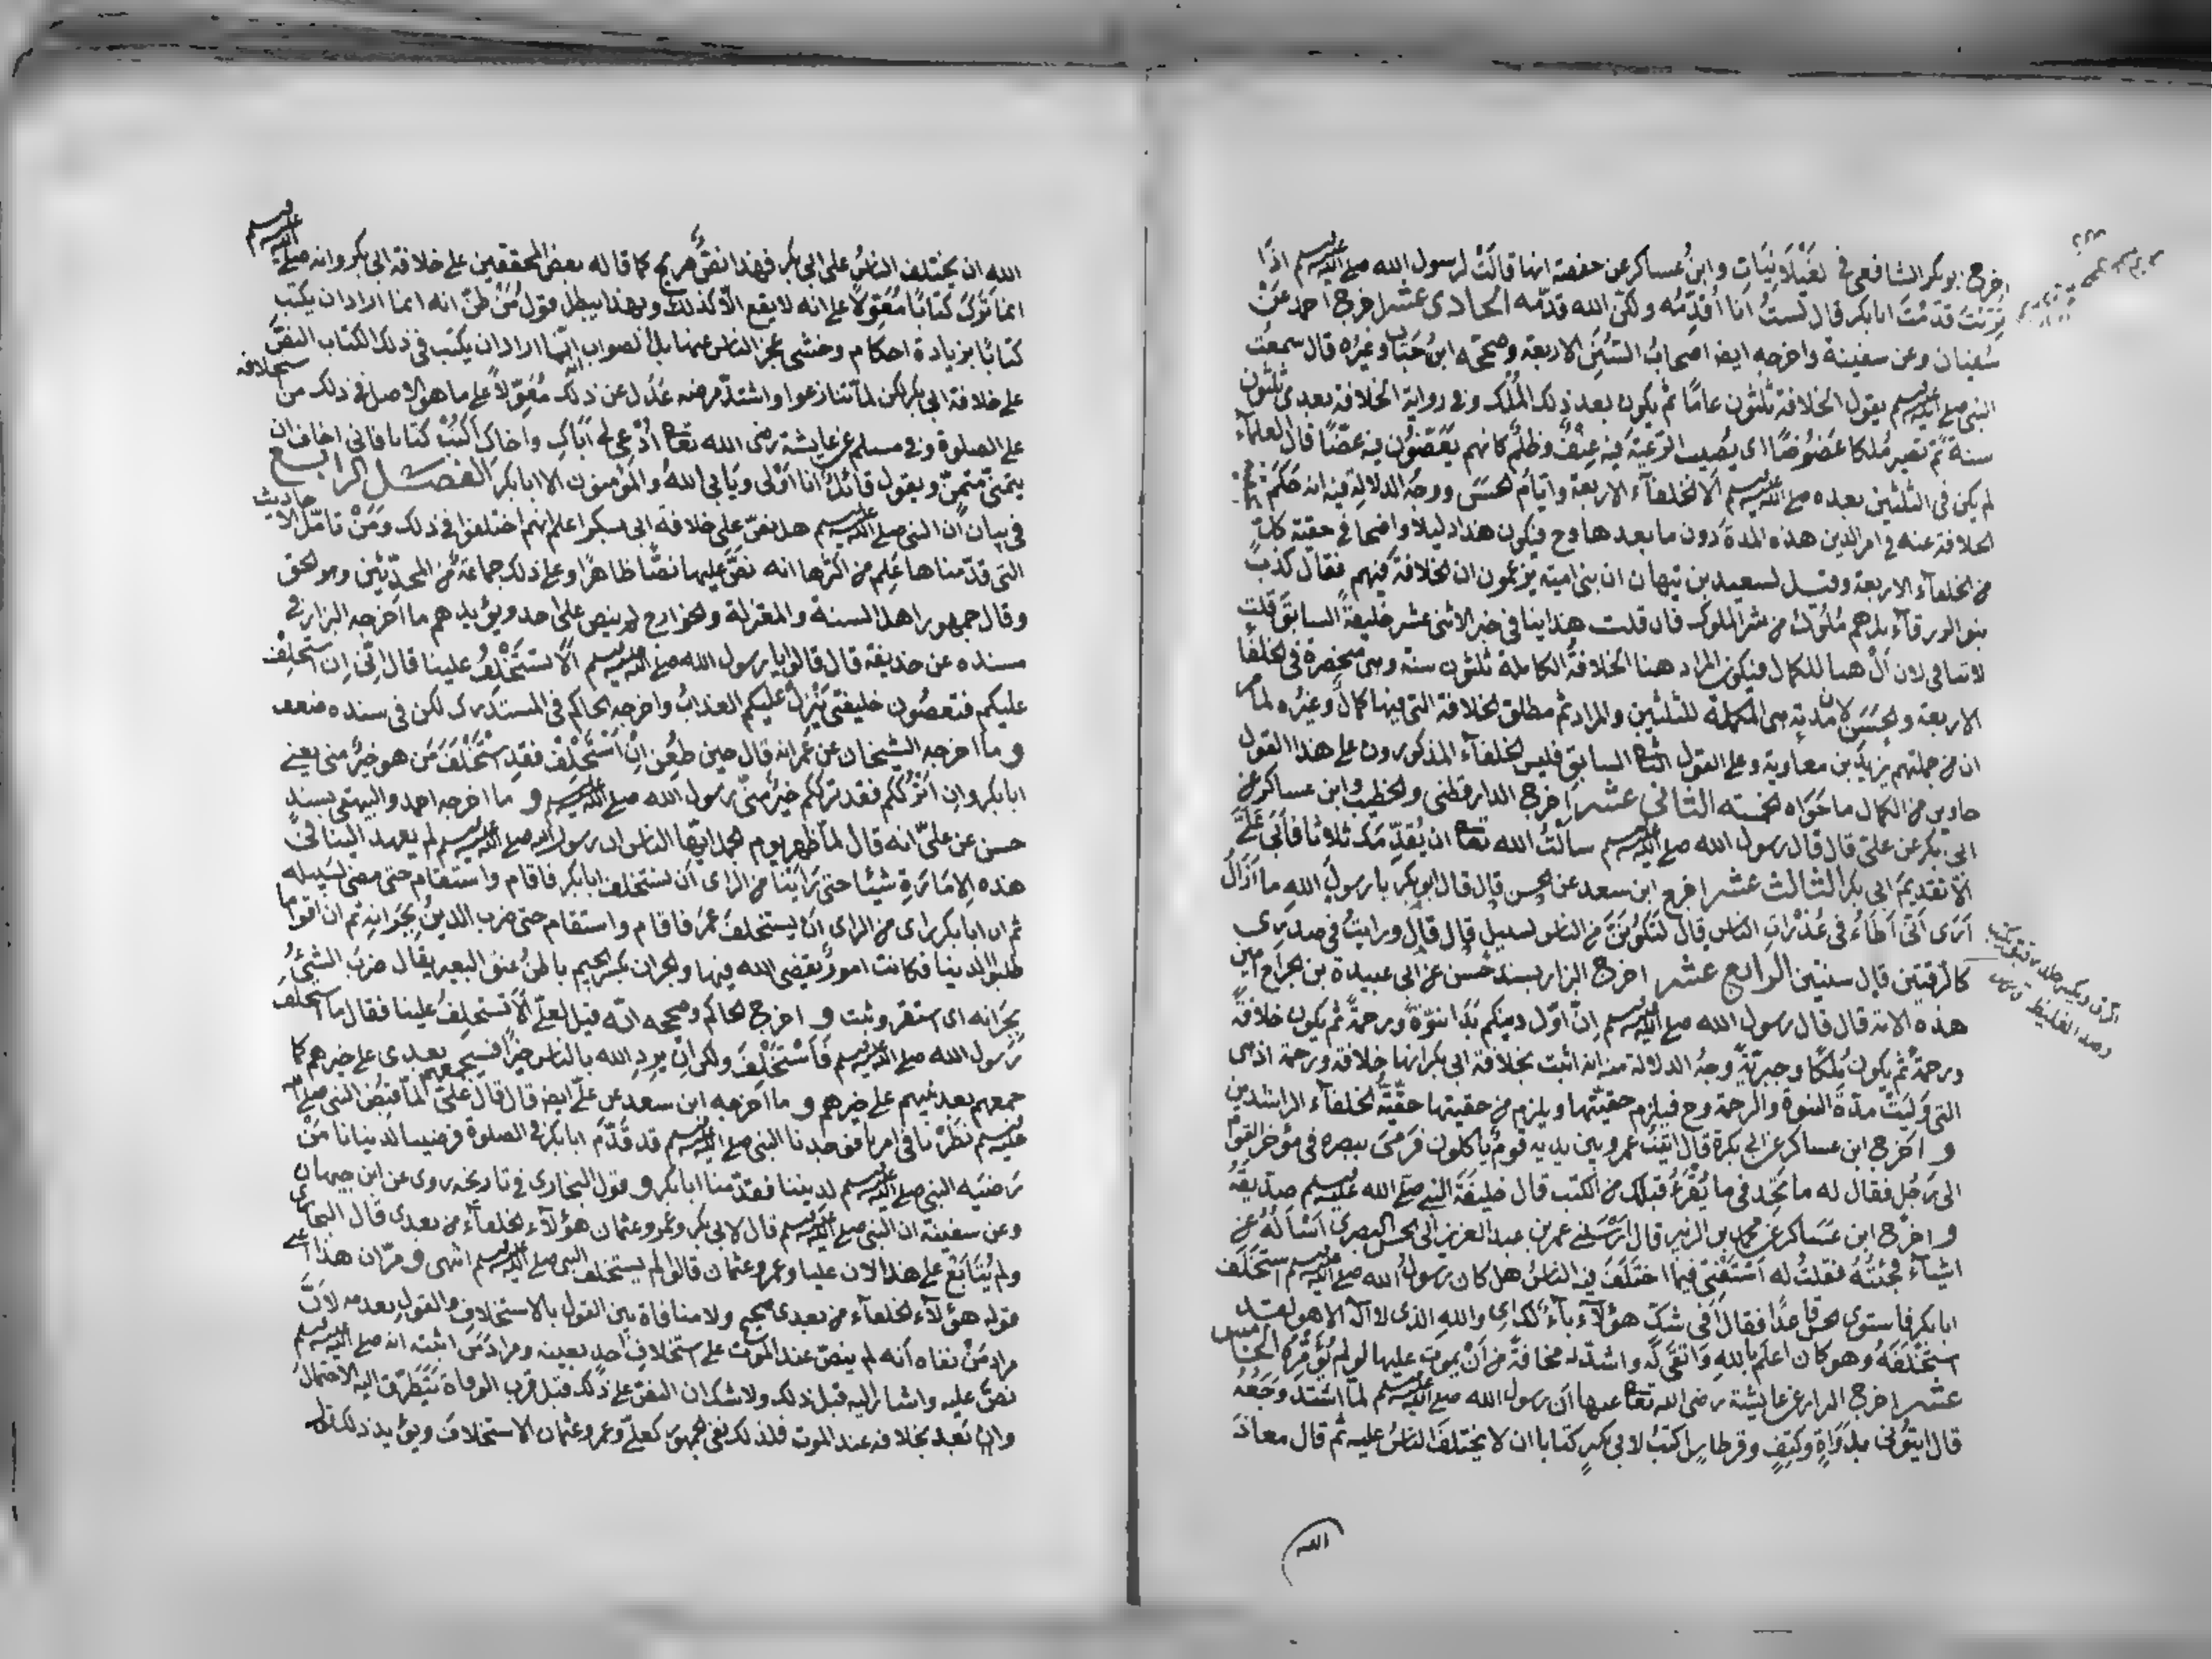 اخرج ابو بكر الشافعى فى الغيلانيات وابن عساكر عن حفصة انها قالت لرسول الله صلى الله عليه وسلم اذا
قدمت ابا بكر قال لست انا اقدمه ولكن الله قدمه الحادى عشر اخرج احمد عن
سفينان وعن سفينة واخرجه ايضا اصحاب السنن الاربعة وصححه ابن حبان وغيره قال سمعت
النبى صلى الله عليه وسلم يقول الخلافة ثلثون عاما ثم يكون بعد ذلك الملك وفى رواية الخلافة بعدى ثلثون
سنة ثم تصير ملكا عضوضا اى يصيب الرعية فيه عنف وظلم كانهم يعضون فيه عضا قال العلماء
لم يكن فى الثلثين بعده صلى الله عليه وسلم الا الخلفاء الاربعة وايام الحسن ووجه الدلالة فيه انه حكم
الخلافة عنه فى امر الدين هذه المدة دون ما بعدها وح فيكون هذا دليلا واضحا فى حقية كل
من الخلفاء الاربعة وقيل لسعيد بن جهان ان بنى امية يزعمون ان الخلافة فيهم فقال كذب
بنو الزرقاء بل هم ملوك من شر الملوك فان قلت هذا ينافى خبر الاثنى عشر خليفة السابق قلت
لا ينافى لان ال هنا للكمال فيكون المراد هنا الخلافة الكاملة ثلثون سنة وهى منحصرة فى الخلفا
الاربعة والحسن لان مدته هى المكملة للثلثين والمراد ثم مطلق الخلافة التى فيها كمال وغيره لما مر
ان من جملتهم يزيد بن معاوية وعلى القول الثانى السابق فليس الخلفاء المذكورون على هذا القول
حاوين من الكمال ما حواه الخمسة الثانى عشر اخرج الدارقطنى والخطيب وابن عساكر عن
ابى بكر عن على قال قال رسول الله صلى الله عليه وسلم سالت الله تعا ان يقدمك ثلاثا فابى على
الا تقديم ابى بكر الثالث عشر اخرج ابن سعد عن الحسن قال قال ابو بكر يا رسول الله ما ازال
ارى انى اطاء فى عذرات الناس قال لتكونن من الناس لسبيل قال ورايت فى صدرى
كالرقمتين قال سنتين الرابع عشر اخرج البزار بسند حسن عن ابى عبيدة بن الجراح امين
هذه الامة قال قال رسول الله صلى الله عليه وسلم ان اول دينكم بدا نبوة ورحمة ثم يكون خلافة
ورحمة ثم يكون ملكا وجبرية وجه الدلالة منه انه اثبت لخلافة ابى بكر انها خلافة ورحمة اذ هى
التى وليت مدة النبوة والرحمة وح فيلزم حقيتها ويلزم من حقيتها حقية الخلفاء الراشدين
و اخرج ابن عساكر عن ابى بكرة قال اتيت عمر وبين يديه قوم ياكلون فرمى ببصره فى مؤخر القوم
الى رجل فقال له ما تجد فى ما يقرء قبلك من الكتب قال خليفة النبى صلى الله عليه وسلم صديقه
و اخرج ابن عساكر عن محمد بن الزبير قال ارسلنى عمر بن عبد العزيز الى الحسن البصرى اسأله عن
اشياء فجئته فقلت له اشفنى فيما اختلف فيه الناس هل كان رسول الله صلى الله عليه وسلم استخلف
ابا بكر فاستوى الحسن قاعدا فقال افى شك هؤلاء والله الذى لا اله الا هو لقد
استخلفه وهو كان اعلم بالله واتقى له واشد له مخافة من ان يموت عليها لو لم يؤمره الخامس
عشر اخرج البزار عن عايشة رضى الله تعا عنها ان رسول الله صلى الله عليه وسلم لما اشتد وجعه
قال ايتونى بدواة وكتف وقرطاس اكتب لابى بكر كتابا ان لا يختلف الناس عليه ثم قال معاذ
الله
الله ان يختلف الناس على ابى بكر فهذا نص صريح كما قاله بعض المحققين على خلافة ابى بكر وانه صلى الله عليه وسلم
انما ترك كتابا معولا على انه لا يقع الا كذلك وبهذا يبطل قول من ظن انه انما اراد ان يكتب
كتابا بزيادة احكام وخشى عجز الناس عنها بل الصواب انما اراد ان يكتب فى ذلك الكتاب النص
على خلافة ابى بكر لكن لما تنازعوا واشتد مرضه عدل عن ذلك معولا على ما هو الاصل فى ذلك من استخلافه
على الصلوة وفى مسلم عن عايشة رضى الله تعا ادعى لى اباك واخاك اكتب كتابا فانى اخاف ان
يتمنى متمن ويقول قائل انا اولى ويابى الله والمؤمنون الا ابا بكر الفصل الرابع
فى بيان ان النبى صلى الله عليه وسلم هل نص على خلافة ابى بكر اعلم انهم اختلفوا فى ذلك ومن تامل الاحاديث
التى قدمناها علم من اكثرها انه نص عليها نصا ظاهرا وعلى ذلك جماعة من المحدثين وهو الحق
وقال جمهور اهل السنة والمعتزلة والخوارج لم ينص على احد ويؤيدهم ما اخرجه البزار فى
مسنده عن حذيفة قال قالوا يا رسول الله صلى الله عليه وسلم الا تستخلف علينا قال انى ان استخلف
عليكم فتعصون خليفتى ينزل عليكم العذاب واخرجه الحاكم فى المستدرك لكن فى سنده ضعف
و ما اخرجه الشيخان عن عمر انه قال حين طعن ان استخلف فقد استخلف من هو خير منى يعنى
ابا بكر وان اترككم فقد ترككم خير منى رسول الله صلى الله عليه وسلم و ما اخرجه احمد والبيهقى بسند
حسن عن على انه قال لما ظهر يوم الجمل ايها الناس ان رسول الله صلى الله عليه وسلم لم يعهد الينا فى
هذه الامارة شيئا حتى راينا من الراى ان نستخلف ابا بكر فاقام واستقام حتى مضى لسبيله
ثم ان ابا بكر راى من الراى ان يستخلف عمر فاقام واستقام حتى ضرب الدين بجرانه ثم ان اقواما
طلبوا الدنيا فكانت امور يقضى الله فيها والجران بكسر الجيم باطن عنق البعير يقال ضرب الشئ
بجرانه اى استقر وثبت و اخرج الحاكم وصححه انه قيل لعلى الا تستخلف علينا فقال ما استخلف
رسول الله صلى الله عليه وسلم فاستخلف ولكن ان يرد الله بالناس خيرا فسيجمعهم بعدى على خيرهم كما
جمعهم بعد نبيهم على خيرهم و ما اخرجه ابن سعد عن على ايضا قال قال على لما قبض النبى صلى الله
عليه وسلم نظرنا فى امرنا فوجدنا النبى صلى الله عليه وسلم قد قدم ابا بكر فى الصلوة فرضينا لدنيانا من
رضيه النبى صلى الله عليه وسلم لديننا فقدمنا ابا بكر و قول البخارى فى تاريخه روى عن ابن جبهان
وعن سفينة ان النبى صلى الله عليه وسلم قال لابى بكر وعمر وعثمان هؤلاء الخلفاء من بعدى قال البخارى
ولم يتابع على هذا لان عليا وعمر وعثمان قالوا لم يستخلف النبى صلى الله عليه وسلم انتهى ومر ان هذا اعنى
قوله هؤلاء الخلفاء من بعدى صحيح ولا منافاة بين القول بالاستخلاف والقول بعدمه لان
مراد من نفاه انه لم ينص عند الموت على استخلاف احد بعينه ومراد من اثبته انه صلى الله عليه وسلم
نص عليه واشار اليه قبل ذلك ولا شك ان النص على ذلك قبل قرب الوفاة يتطرق اليه الاحتمال
وان بعد بخلافه عند الموت فلذلك نفى جمهور كعلى وعمر وعثمان الاستخلاف ويؤيد ذلك